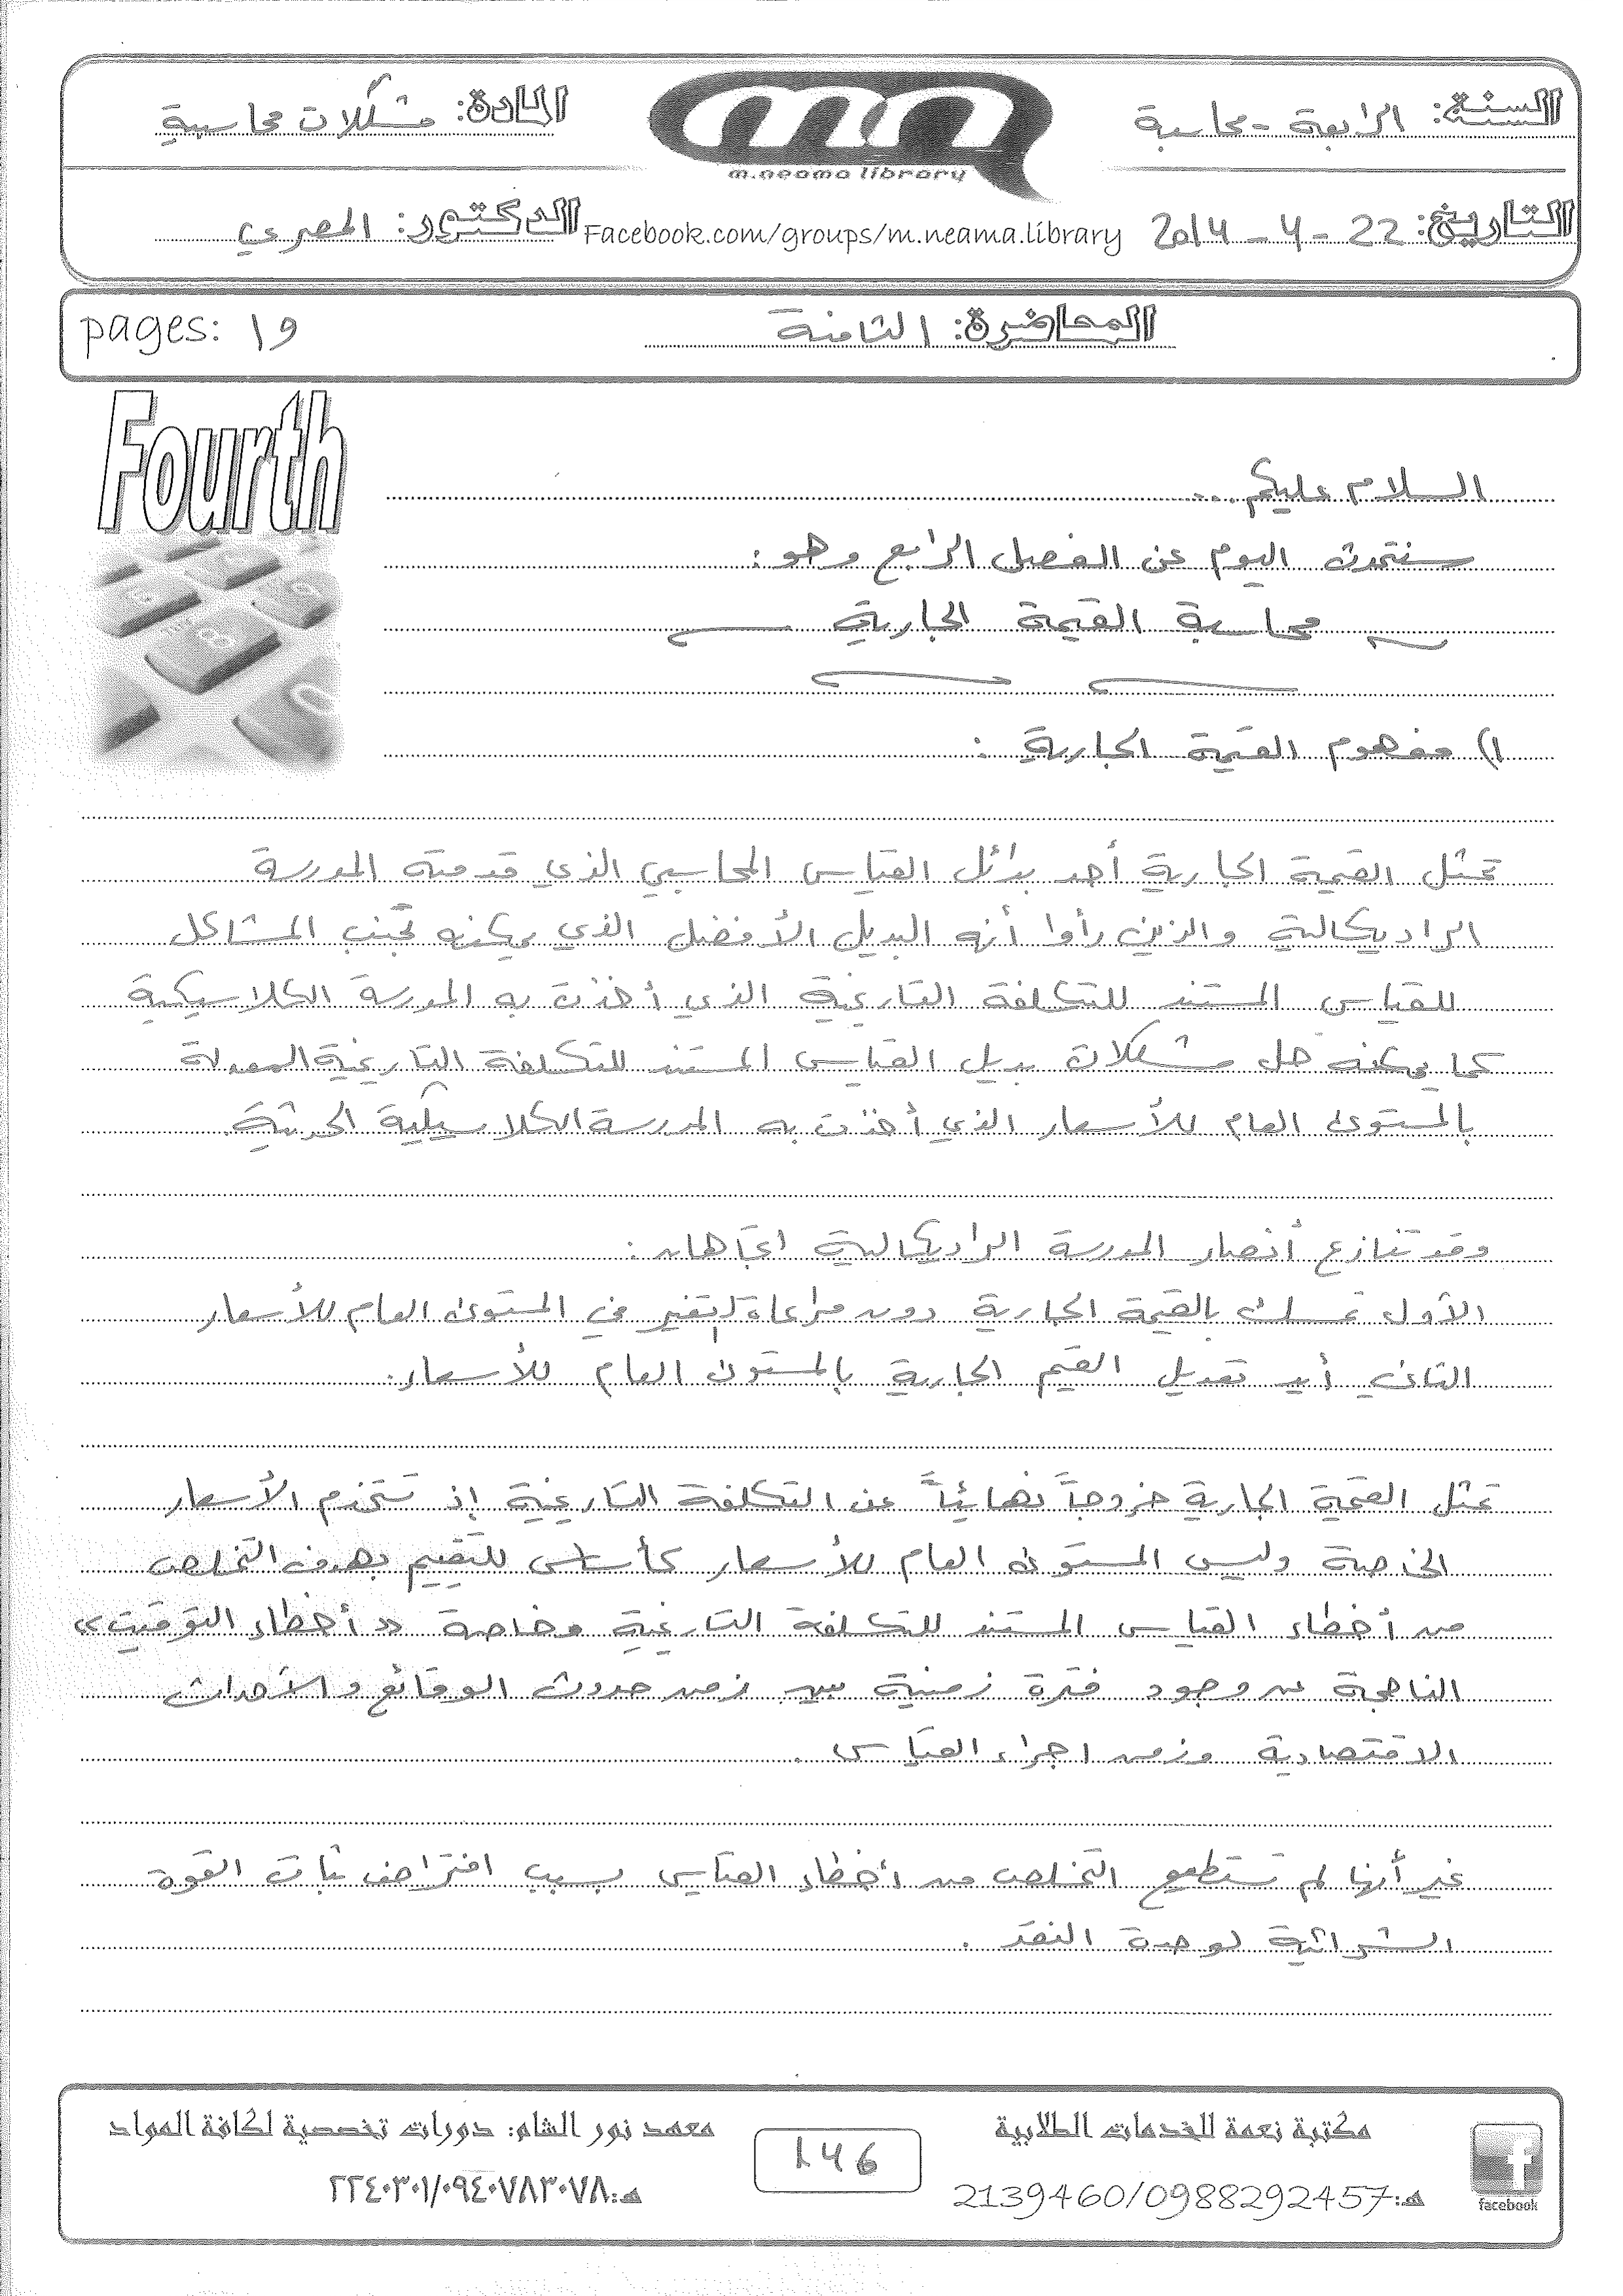 السنة: الرابعة - محاسبة
المادة: مشكلات محاسبية
m.neama library
التاريخ: 22 - 4 - 2014
Facebook.com/groups/m.neama.library
الدكتور: المصري
المحاضرة: الثامنة
pages: 19
Fourth
السلام عليكم...
سنتحدث اليوم عن الفصل الرابع وهو:
محاسبة القيمة الجارية
1) مفهوم القيمة الجارية :
تمثل القيمة الجارية أحد بدائل القياس المحاسبي الذي قدمته المدرسة
الراديكالية والذين رأوا أنه البديل الأفضل الذي يمكنه تجنب المشاكل
للقياس المستند للتكلفة التاريخية الذي أخذت به المدرسة الكلاسيكية
كما يمكنه حل مشكلات بديل القياس المستند للتكلفة التاريخية المعدلة
بالمستوى العام للأسعار الذي أخذت به المدرسة الكلاسيكية الحديثة.
وقد تنازع أنصار المدرسة الراديكالية اتجاهان :
الأول تمسك بالقيمة الجارية دون مراعاة التغير في المستوى العام للأسعار
الثاني أيد تعديل القيم الجارية بالمستوى العام للأسعار.
تمثل القيمة الجارية خروجاً نهائياً عن التكلفة التاريخية إذ تستخدم الأسعار
الخاصة وليس المستوى العام للأسعار كأساس للتقييم بهدف التخلص
من أخطاء القياس المستند للتكلفة التاريخية وخاصة « أخطاء التوقيت »
الناجمة عن وجود فترة زمنية بين زمن حدوث الوقائع والأحداث
الاقتصادية وزمن اجراء القياس .
غير أنها لم تستطيع التخلص من أخطاء القياس بسبب افتراض ثبات القوة
الشرائية لوحدة النقد .
مكتبة نعمة للخدمات الطلابية
معهد نور الشام: دورات تخصصية لكافة المواد
146
هـ:2139460/0988292457
هـ:٢٢٤٠٣٠١/٠٩٤٠٧٨٣٠٧٨
facebook